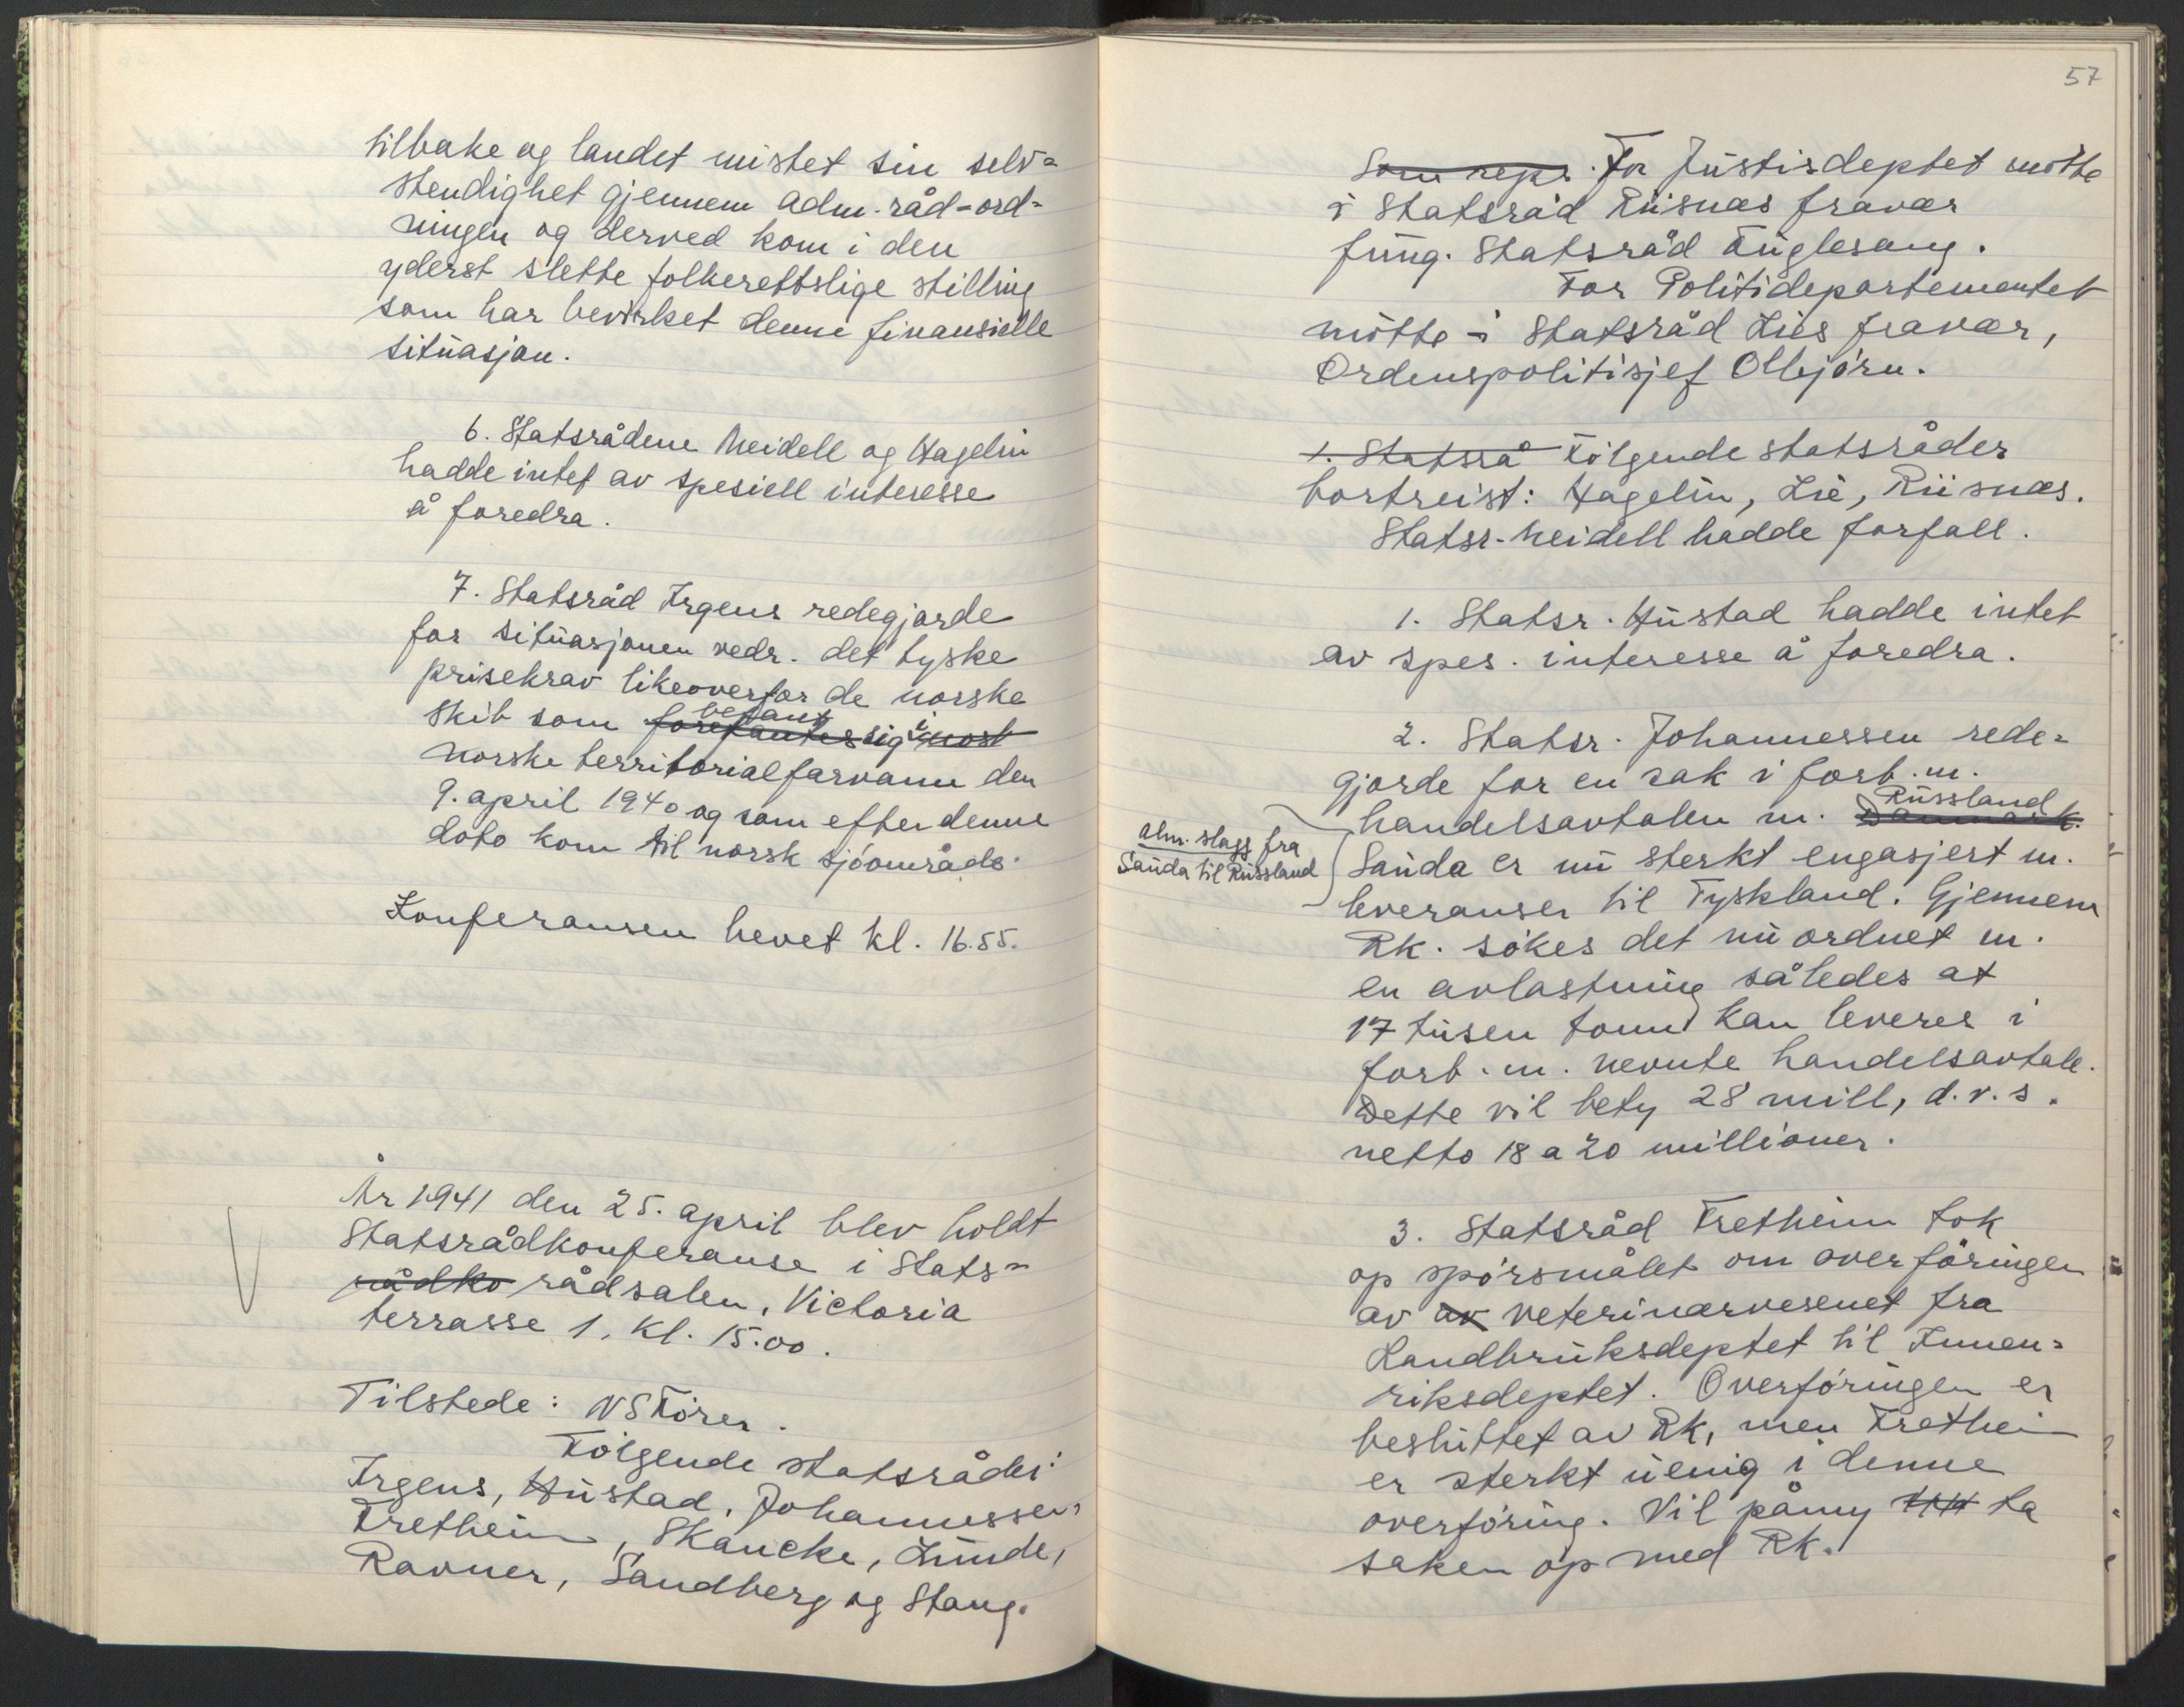 tilbake og landet mistet sin selv=
stendighet gjennem adm.råd-ord=
ningen og derved kom i den
yderst slette folkerettslige stilling
som har bevirket denne finansielle
situasjon.
6. Statsrådene Meidell og Hagelin
hadde intet av spesiell interesse
å foredra.
7. Statsråd Irgens redegjorde
for situasjonen vedr. det tyske
prisekrav likeoverfor de norske
skib som forefantes befant sig i norsk
norske territorialfarvann den
9. april 1940 og som efter denne
dato kom til norsk sjöområde.
Konferansen hevet kl. 16.55.
År 1941 den 25. april blev holdt
Statsrådkonferanse i Stats=
rådko rådsalen, Victoria
terrasse 1, kl. 15.00.
Tilstede: NS Förer.
Fölgende statsråder:
Irgens, Hustad, Johannessen,
Fretheim, Skancke, Lunde,
Ravner, Sandberg og Stang.
57
Som repr. For Justisdeptet mötte
i Statsråd Riisnæs fravær
fung. Statsråd Fuglesang.
For Politidepartementet
mötte i Statsråd Lies fravær,
Ordenspolitisjef Olbjörn.
1. Statsrå Fölgende statsråder
bortreist: Hagelin, Lie, Riisnæs.
Statsr. Meidell hadde forfall.
1. Statsr. Hustad hadde intet
av spes. interesse å foredra.
2. Statsr. Johannessen rede=
gjorde for en sak i forb. m.
handelsavtalen m. Danmark. Russland
alm. slagg fra
Sauda til Russland
Sauda er nu sterkt engasjert m.
leveranser til Tyskland. Gjennem
Rk. sökes det nu ordnet m.
en avlastning således at
17 tusen tonn kan leveres i
forb. m. nevnte handelsavtale.
Dette vil bety 28 mill, d.v.s.
netto 18 a 20 millioner.
3. Statsråd Fretheim tok
op spörsmålet om overföringen
av av veterinærvesenet fra
Landbruksdeptet til Innen=
riksdeptet. Overföringen er
besluttet av Rk, men Fretheim
er sterkt uenig i denne
overföring. Vil påny ta
saken op med Rk.